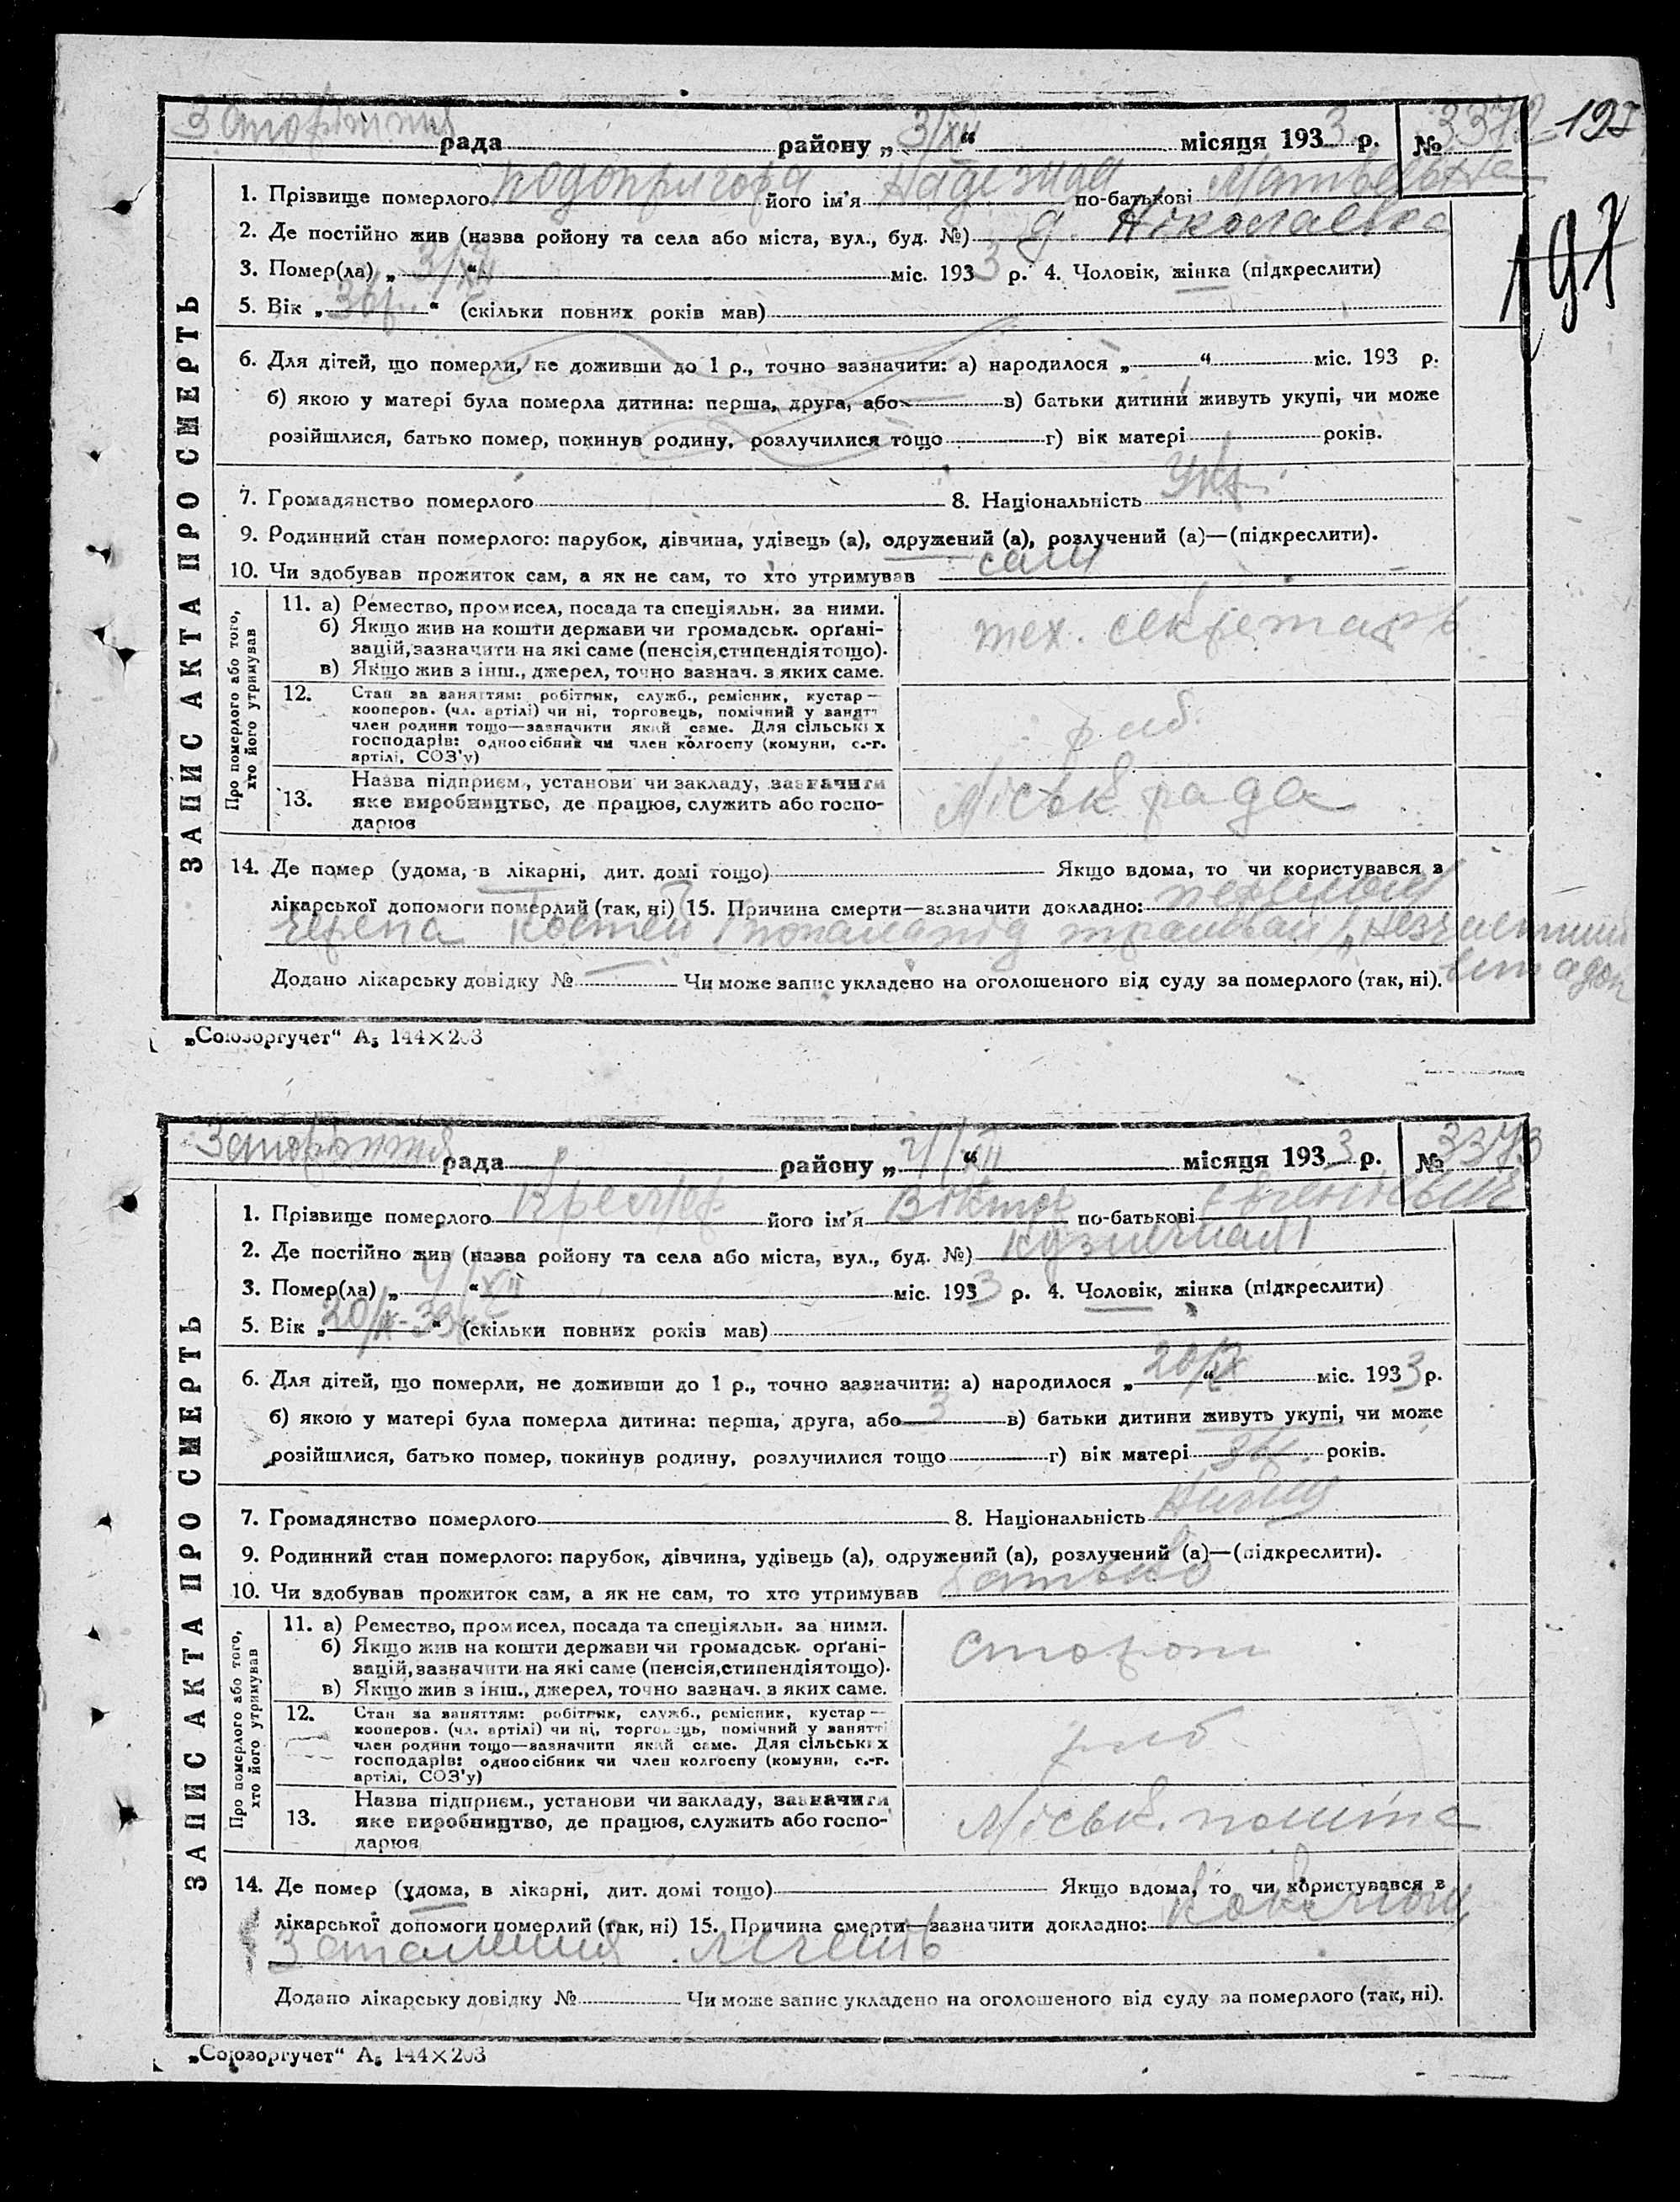 Запоріжжя рада району „3/XII“ місяця 1933 р. № 3372 195
197
ЗАПИС АКТА ПРО СМЕРТЬ
1. Прізвище померлого Подопригора його ім'я Надежда по-батькові Матвеевна
2. Де постійно жив (назва ройону та села або міста, вул., буд. №) д. Ніколаевка
3. Помер(ла) „3/XII“ міс. 1933 р. 4. Чоловік, жінка (підкреслити)
5. Вік „36р.“ (скільки повних років мав)
6. Для дітей, що померли, не доживши до 1 р., точно зазначити: а) народилося „ “ міс. 193 р.
б) якою у матері була померла дитина: перша, друга, або в) батьки дитини живуть укупі, чи може
розійшлися, батько помер, покинув родину, розлучилися тощо г) вік матері років.
7. Громадянство померлого 8. Національність Укр.
9. Родинний стан померлого: парубок, дівчина, удівець (а), одружений (а), розлучений (а)—(підкреслити).
10. Чи здобував прожиток сам, а як не сам, то хто утримував сам
Про померлого або того, хто його утримував
11. а) Ремество, промисел, посада та спеціяльн. за ними.
б) Якщо жив на кошти держави чи громадськ. орґані-
зацій, зазначити на які саме (пенсія, стипендія тощо).
в) Якщо жив з інш., джерел, точно зазнач. з яких саме.
тех. секретарь
12. Стан за заняттям: робітник, служб., ремісник, кустар—
кооперов. (чл. артілі) чи ні, торговець, помічний у занятт
член родини тощо—зазначити який саме. Для сільських
господарів: одноосібник чи член колгоспу (комуни, с.-г.
артілі, СОЗ'у)
роб.
13. Назва підприєм., установи чи закладу, зазначити
яке виробництво, де працює, служить або госпо-
дарює
Міськ рада
14. Де помер (удома, в лікарні, дит. домі тощо) Якщо вдома, то чи користувався з
лікарської допомоги померлий (так, ні) 15. Причина смерти—зазначити докладно: перелом
черепа костей /попала під трамвай/,
Додано лікарську довідку № Чи може запис укладено на оголошеного від суду за померлого (так, ні).
„Союзоргучет“ А5 144×203
Запоріжжя рада району „4/XII“ місяця 1933 р. № 3373
ЗАПИС АКТА ПРО СМЕРТЬ
1. Прізвище померлого його ім'я Віктор по-батькові Евгенієвич
2. Де постійно жив (назва ройону та села або міста, вул., буд. №)
3. Помер(ла) „4/XII“ міс. 1933 р. 4. Чоловік, жінка (підкреслити)
5. Вік „20/IX-33р“ (скільки повних років мав)
6. Для дітей, що померли, не доживши до 1 р., точно зазначити: а) народилося „20/IX“ міс. 1933 р.
б) якою у матері була померла дитина: перша, друга, або 3 в) батьки дитини живуть укупі, чи може
розійшлися, батько помер, покинув родину, розлучилися тощо г) вік матері років.
7. Громадянство померлого 8. Національність
9. Родинний стан померлого: парубок, дівчина, удівець (а), одружений (а), розлучений (а)—(підкреслити).
10. Чи здобував прожиток сам, а як не сам, то хто утримував батько
Про померлого або того, хто його утримував
11. а) Ремество, промисел, посада та спеціяльн. за ними.
б) Якщо жив на кошти держави чи громадськ. орґані-
зацій, зазначити на які саме (пенсія, стипендія тощо).
в) Якщо жив з інш., джерел, точно зазнач. з яких саме.
сторож
12. Стан за заняттям: робітник, служб., ремісник, кустар—
кооперов. (чл. артілі) чи ні, торговець, помічний у занятті
член родини тощо—зазначити який саме. Для сільських
господарів: одноосібник чи член колгоспу (комуни, с.-г.
артілі, СОЗ'у)
роб
13. Назва підприєм., установи чи закладу, зазначити
яке виробництво, де працює, служить або госпо-
дарює
Міськ. пошта
14. Де помер (удома, в лікарні, дит. домі тощо) Якщо вдома, то чи користувався з
лікарської допомоги померлий (так, ні) 15. Причина смерти—зазначити докладно: Коклюш,
Запалення легень
Додано лікарську довідку № Чи може запис укладено на оголошеного від суду за померлого (так, ні).
„Союзоргучет“ А5 144×203